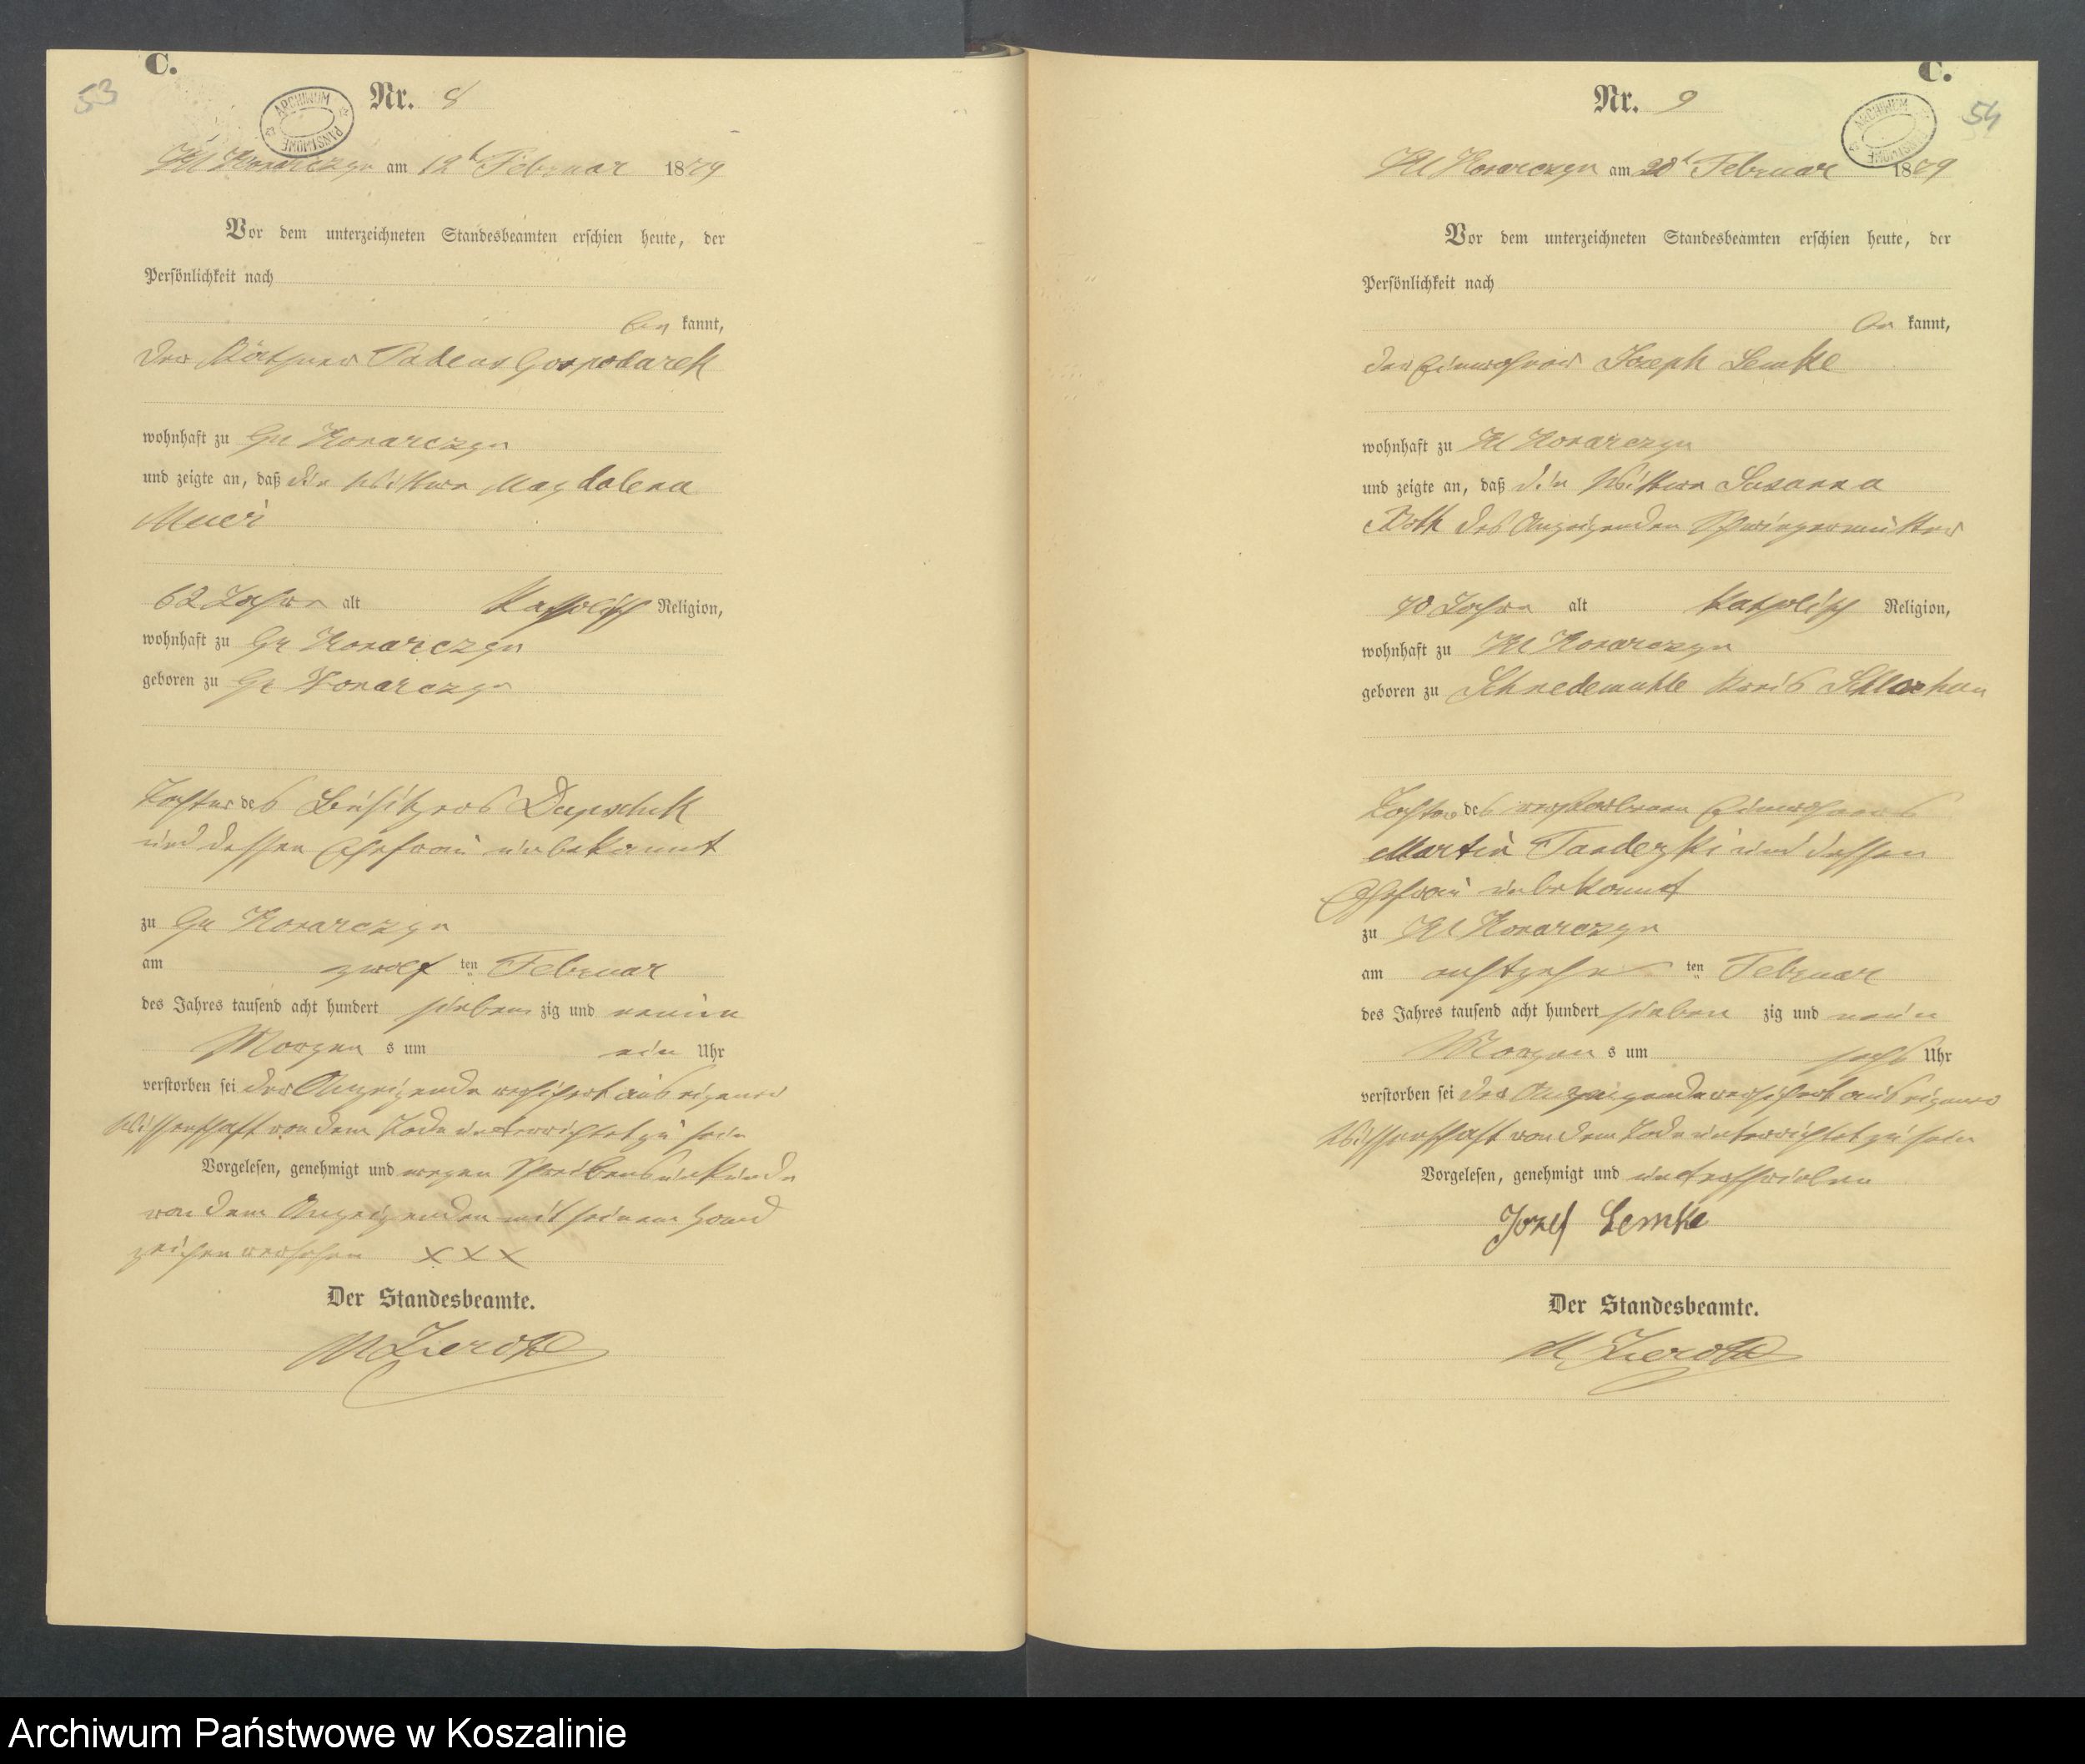 C.
53
Nr. 8
ARCHIWUM PAŃSTWOWE
Kl Konarczyn am 12t Februar 1879
Vor dem unterzeichneten Standesbeamten erschien heute, der
Persönlichkeit nach
be kannt,
der Käthner Gospodarek
wohnhaft zu Gr Konarczyn
und zeigte an, daß die Wittwe Magdalena
62 Jahre alt Katholisch Religion,
wohnhaft zu Gr Konarczyn
geboren zu Gr Konarczyn
Tochter des Besitzers
und dessen Ehefrau unbekannt
zu Gr Konarczyn
am zwölf ten Februar
des Jahres tausend acht hundert sieben zig und neun
Morgen s um ein Uhr
verstorben sei der Anzeigende versichert aus eigener
Wissenschaft von dem Tode unterrichtet zu sein
Vorgelesen, genehmigt und wegen Schreibensunkunde
von dem Anzeigenden mit seinem Hand
zeichen versehen XXX
Der Standesbeamte.
C.
54
Nr. 9
ARCHIWUM PAŃSTWOWE
Kl Konarczyn am 20t Februar 1879
Vor dem unterzeichneten Standesbeamten erschien heute, der
Persönlichkeit nach
be kannt,
der Einwohner Joseph Lemke
wohnhaft zu Kl Konarczyn
und zeigte an, daß die Wittwe Susanna
Roth des Anzeigenden Schwiegermutter
70 Jahre alt Katholisch Religion,
wohnhaft zu Kl Konarczyn
geboren zu Kreis Schlochau
Tochter des verstorbenen Einwohners
Martin und dessen
Ehefrau unbekannt
zu Kl Konarczyn
am achtzehn ten Februar
des Jahres tausend acht hundert sieben zig und neun
Morgen s um sechs Uhr
verstorben sei der Anzeigende versichert aus eigener
Wissenschaft von dem Tode unterrichtet zu sein
Vorgelesen, genehmigt und unterschrieben
Jozef Lemke
Der Standesbeamte.
Archiwum Państwowe w Koszalinie